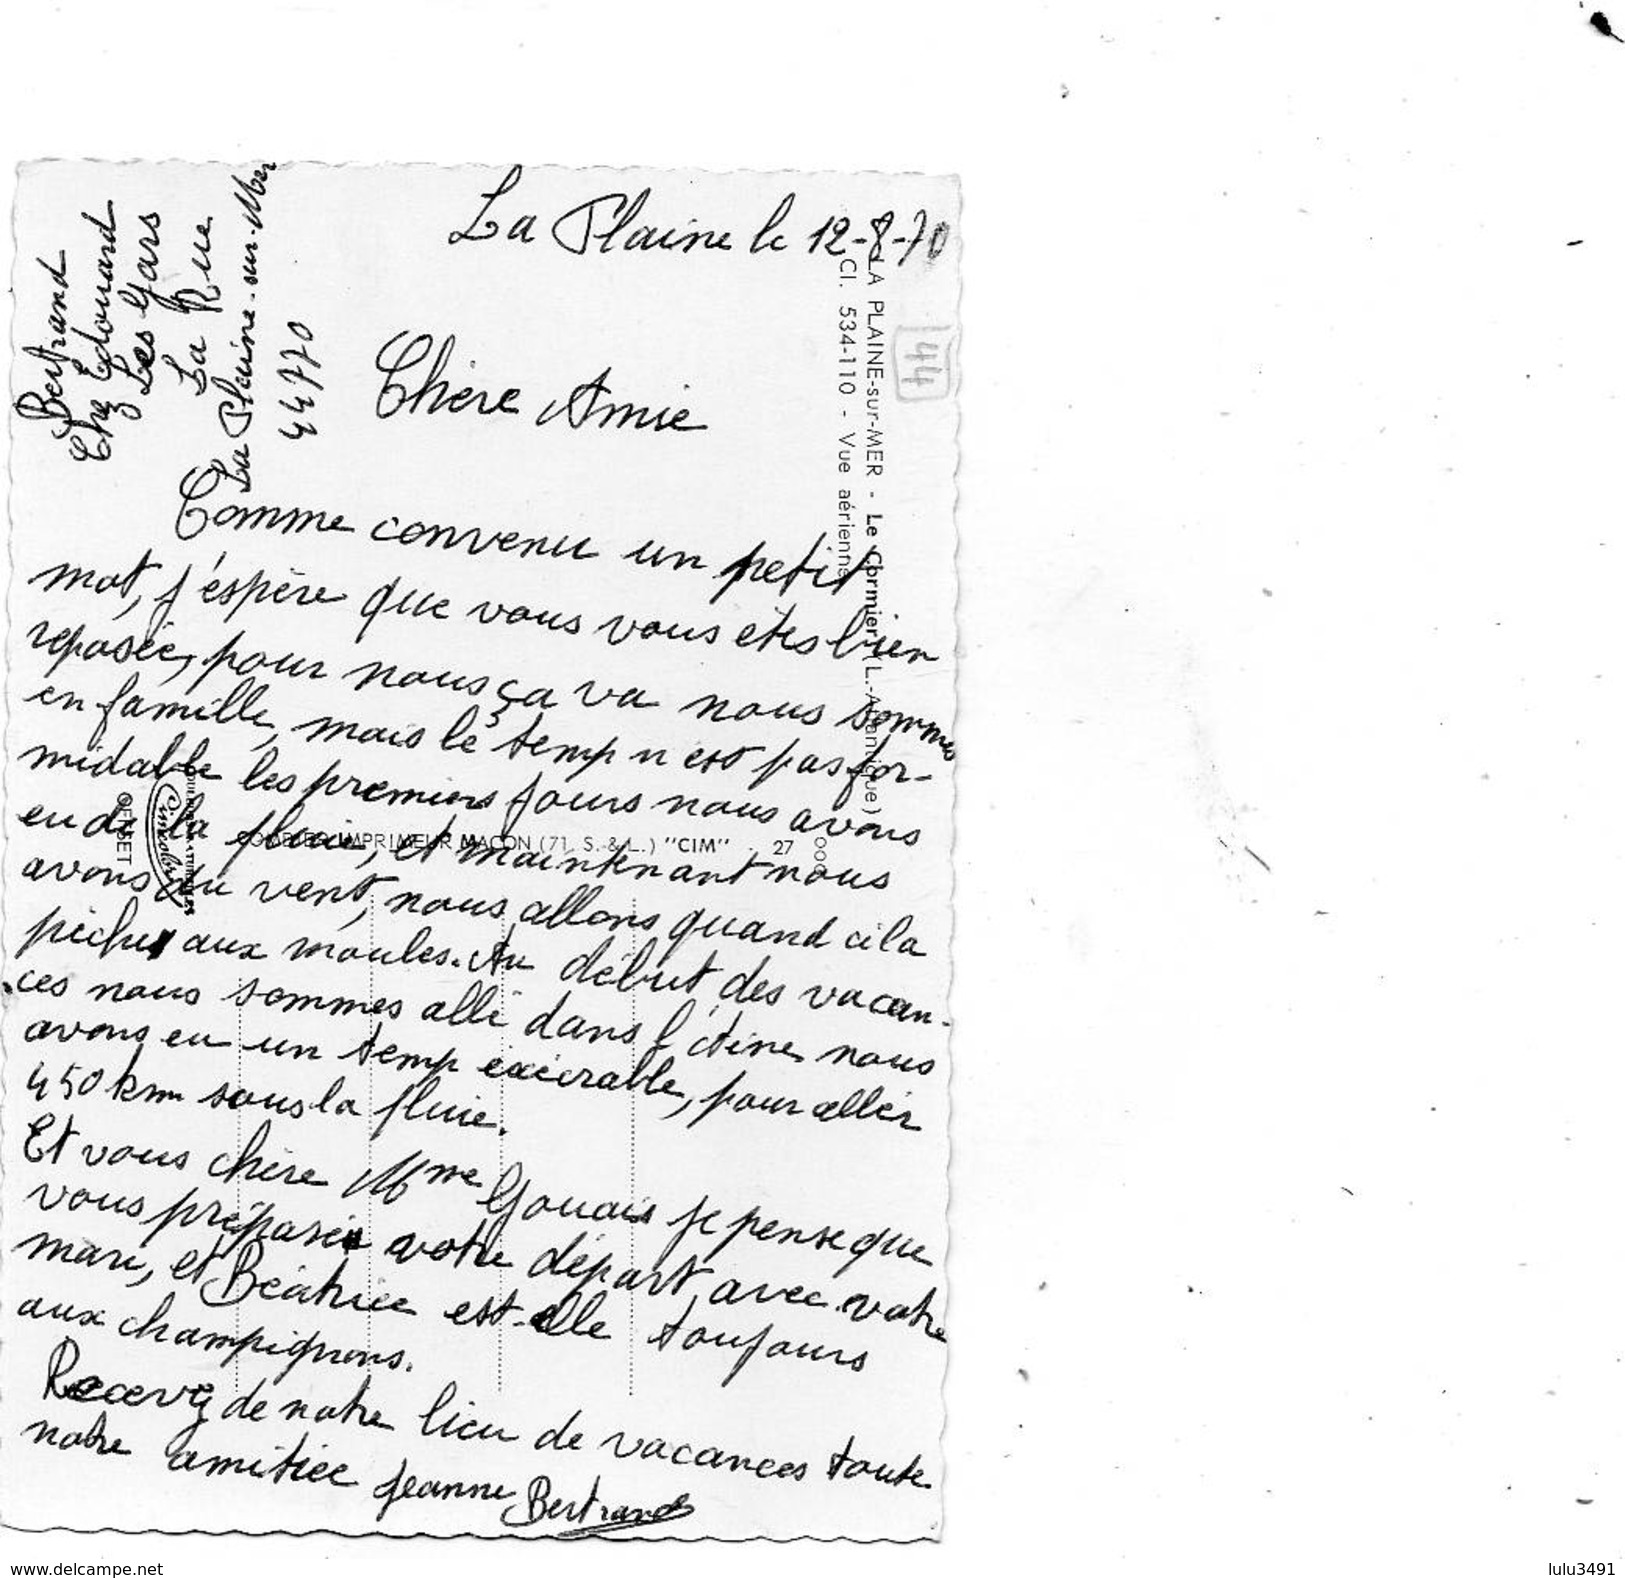 La Plaine le 12-8-70
Bertrand
Chez Edouard
Les Gars
La Rue
La Plaine-sur-Mer
44770
44
LA PLAINE-sur-MER - Le Cormier (L.-Atlantique)
Cl. 534-110 - Vue aérienne
Chère Amie
Comme convenu un petit
mot, j'espère que vous vous etes bien
reposée, pour nous ça va nous sommes
en famille, mais le temp n'est pas for-
midable les premiers jours nous avons
eu de la pluie, et maintenant nous
avons du vent, nous allons quand cela
pécher aux moules. Au début des vacan-
ces nous sommes allé dans l' nous
avons eu un temp exécrable, pour aller
450 km sous la pluie.
Et vous chère Mme Gouais je pense que
vous préparée votre départ avec votre
mari, et Béatrice est-elle toujours
aux champignons.
Recevez de notre lieu de vacances toute
notre amitiée Jeanne Bertrand
COMBIER IMPRIMEUR MACON (71 S.-&-L.) "CIM"
27 000
OFFSET
www.delcampe.net
lulu3491